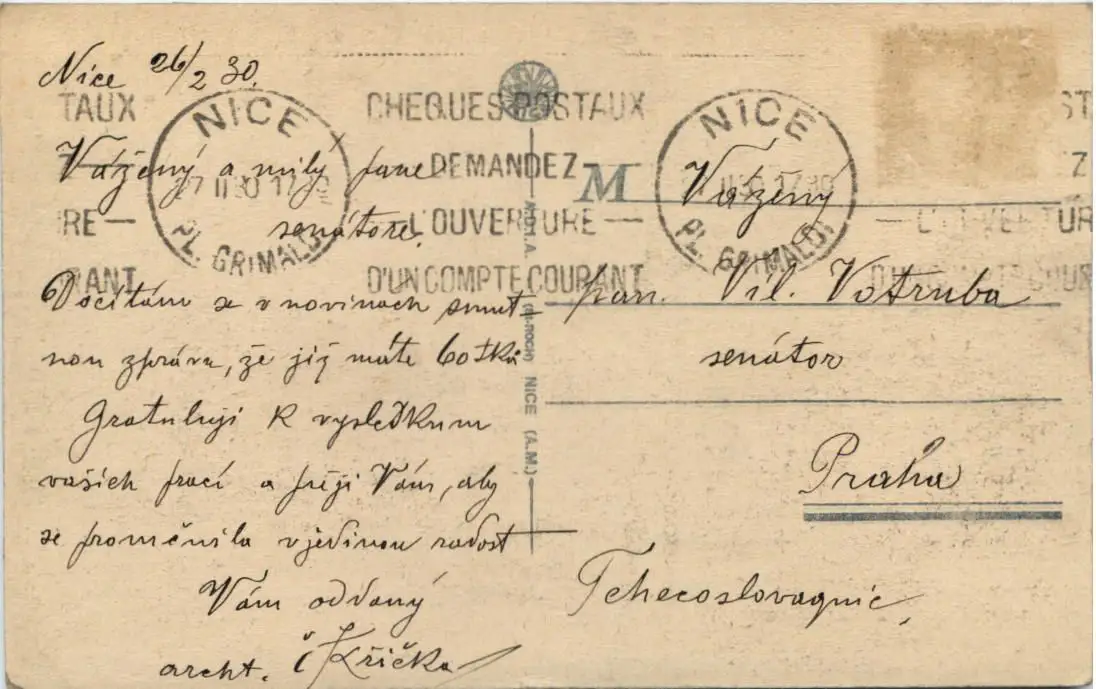 Nice 26/2 30.
Vážený a milý pane
senátore.
Dočítám se v novinách smut-
nou zprávu, že již máte 60 tku
Gratuluji k výsledkum
vašich prací a přeji Vám, aby
se proměnila v jedinou radost
Vám oddaný
archt. Č Křička
TAUX
RE —
RANT
NICE
27 II 30 17 30
PL. GRIMALDI
CHEQUES POSTAUX
DEMANDEZ
L'OUVERTURE —
D'UN COMPTE COURANT
NICE
II 30 17 30
PL. GRIMALDI
NICE (A.M.)
M Vážený
pan. Vil. Votruba
senátor
Praha
Tchecoslovaquie,